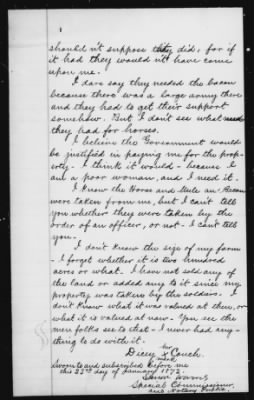 shouldn't suppose they did, for if
it had they would n't have come
upon me.
I dare say they needed the bacon
because there was a large army there
and they had to get their support
somehow. But I don't see what
they had for horses.
I believe the Government would
be justified in paying me for the prop-
erty - I think it would - because I
am a poor woman, and I need it.
I know the Horse and Mule an' Bacon
were taken from me, but I can't tell
you whether they were taken by the
order of an officer, or not - I can't tell
you.
I don't know the size of my farm
- I forget whether it is two hundred
acres or what. I have not sold any of
the land or added any to it since my
property was taken by the soldiers. I
don't know what it was valued at then, or
what it is valued at now. You see the
men folks see to that - I never had any-
thing to do with it.
her
Dicey X Couch.
mark
Sworn to and subscribed before me
this 22nd day of January 1872.
Special Commissioner
and Notary Public.